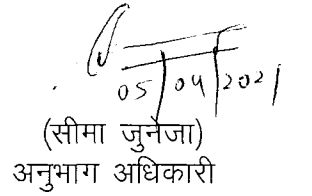 05/04/2021
(सीमा जुनेजा)
अनुभाग अधिकारी